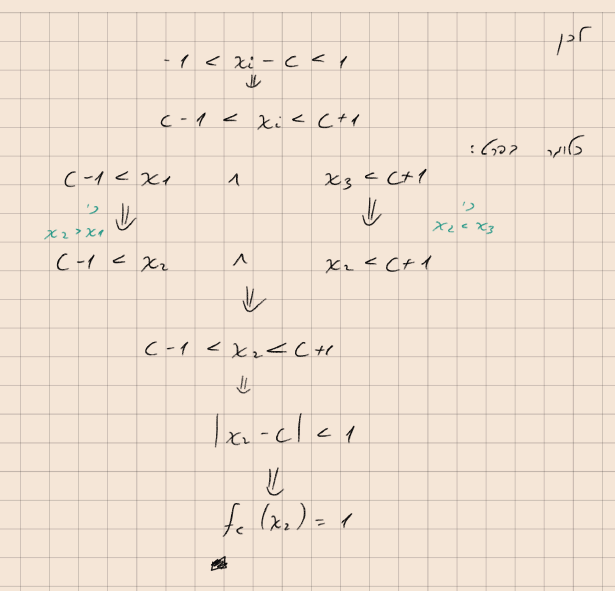 לכן
-1 < xi - c < 1
⇓
c-1 < xi < c+1
כלומר בפרט:
c-1 < x1 ∧ x3 < c+1
⇓ כי x2 > x1 ⇓ כי x2 < x3
c-1 < x2 ∧ x2 < c+1
⇓
c-1 < x2 < c+1
⇓
|x2 - c| < 1
⇓
fc (x2) = 1